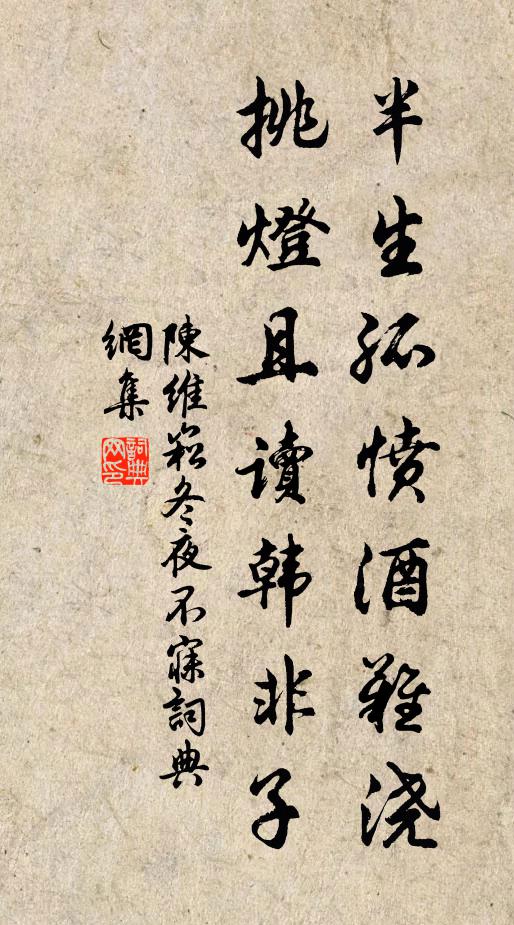 半生孤憤酒難浇
挑燈且讀韩非子
陳維崧冬夜不寐詞典
網集
詞典網印